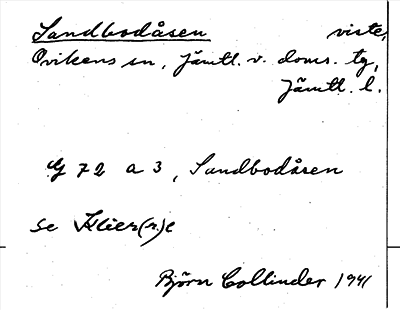 Sandbodåsen viste,
Ovikens sn, Jämtl. v. doms. tg,
Jämtl. l.
G 72 a 3, Sandbodåsen
se Klier(r.)e
Björn Collinder 1941